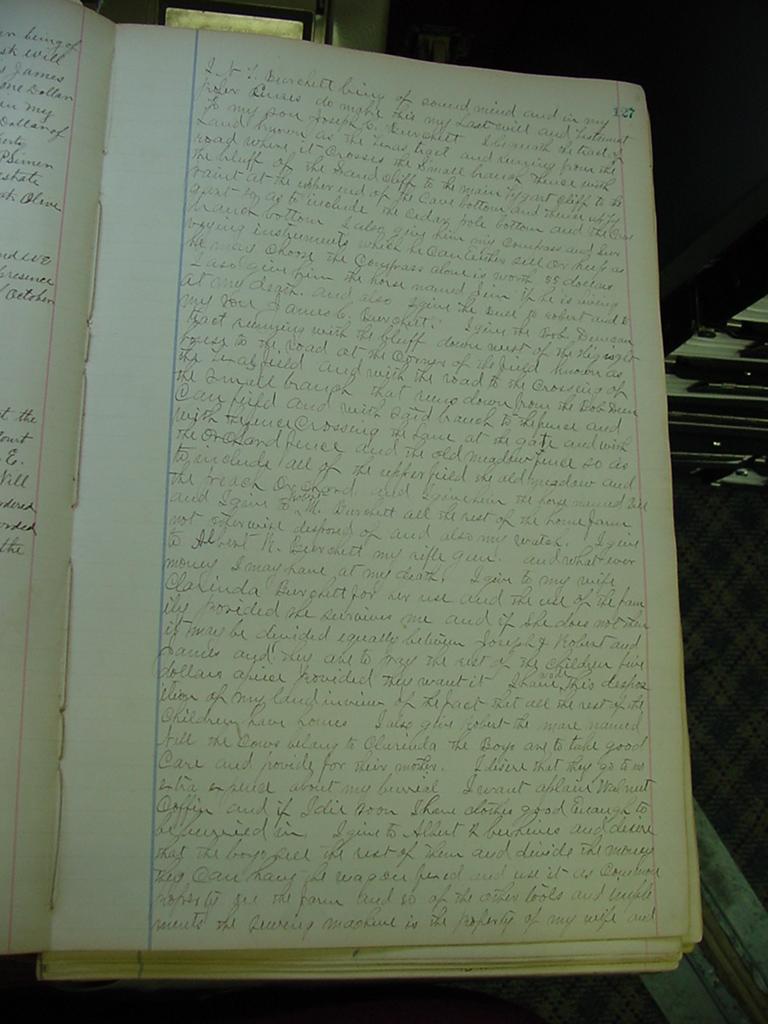 en being of
sk will
s James
one Dollar
in my
Dollar of
erty
estate
ah Olive
nd we
presence
October
t the
ourt
E.
Will
ordered
orded
the
127
I N. T. Burchett being of sound mind and in my
proper senses do make this my Last will and Testament
To my son Joseph E. Burchett I bequeath the tract of
Land known as the and running from the
road where it Crosses the Small branch thence with
the bluff of the Sand Cliff to the main Cliff to the
point at the upper end of the Cave bottom and thence up
so as to include the Cedar pole bottom and the
branch bottom I also give him my Compass and Sur
veying instruments which he Can either sell or keep as
he may choose the Compass alone is worth 25 dollars
I also give him the horse named Jim if he is living
at my death. and also I give the to robert and to
my son James C. Burchett. I give the Bob Duncan
tract running with the bluff down west of the
house to the road at the Corner of the field known as
the field and with the road to the Crossing of
the Small branch that runs down from the Bob Dun
Can field and with said branch to the fence and
with the fence Crossing the Lane at the gate and with
the Orchard fence and the old meadow fence so as
to include all of the upper field the old meadow and
the peach Orchard and I give him the horse named Bill
and I give to Robert M. Burchett all the rest of the home farm
not otherwise disposed of and also my watch. I give
to Albert W. Burchett my rifle gun. and what ever
money I may have at my death. I give to my wife
Clarinda Burchett for her use and the use of the fam
ily provided she survives me and if she does not then
it may be divided equally between Joseph & Robert and
James and they are to pay the rest of the children five
dollars apiece provided they want it I have made this dispos
ition of my land in view of the fact that all the rest of the
Children have homes I also give Robert the mare named
Nell the Cows belong to Clarinda the Boys are to take good
Care and provide for their mother. I desire that they go to no
extra expence about my burial I want a plain Walnut
Coffin and if I die soon I have clothes good Enough to
be burried in I give to Albert 2 and desire
that the boys sell the rest of them and divide the money
they Can have the wagon and use it as Common
property on the farm and so of the other tools and imple
ments the sewing machine is the property of my wife and